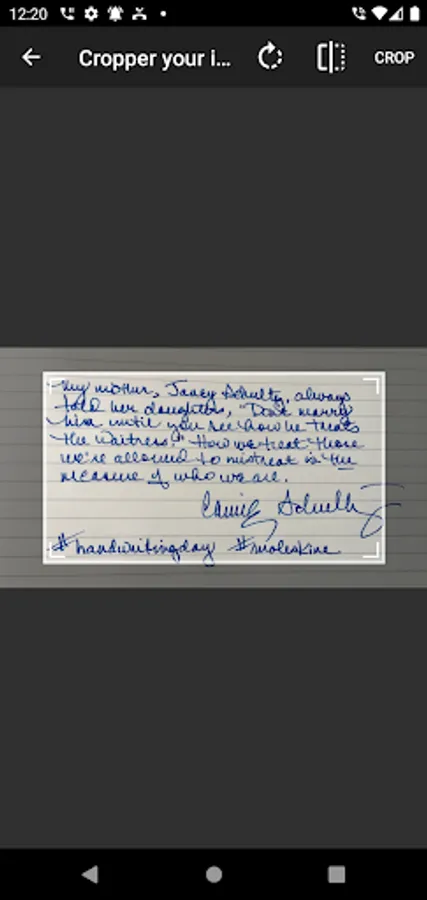 12:20
Cropper your i... CROP
My mother, Janey Schultz, always
told her daughters, "Don't marry
him until you see how he treats
the waitress." How we treat those
we're allowed to mistreat is the
measure of who we are.
Schultz
#handwritingday #moleskine